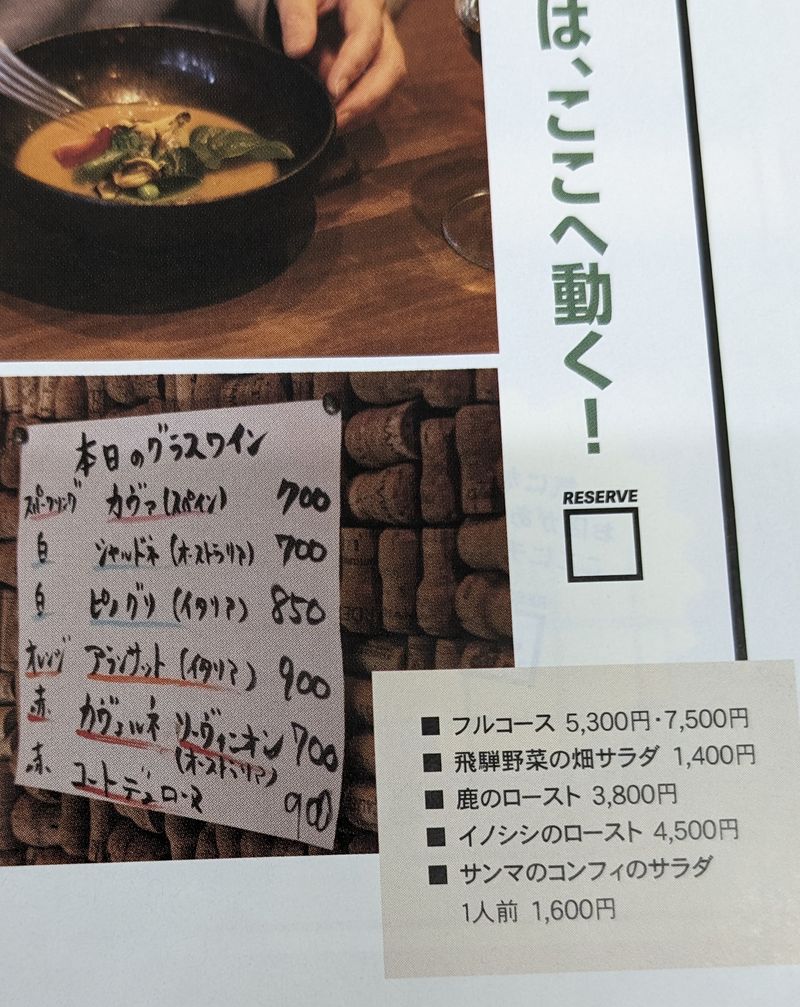 は、ここへ動く!
RESERVE
本日のグラスワイン
スパークリング カヴァ(スペイン) 700
白 シャルドネ(オーストラリア) 700
白 ピノグリ(イタリア) 850
オレンジ アランサット(イタリア) 900
赤 カヴェルネ ソーヴィニオン 700
(オーストラリア)
赤 コートデュローヌ 900
■ フルコース 5,300円・7,500円
■ 飛騨野菜の畑サラダ 1,400円
■ 鹿のロースト 3,800円
■ イノシシのロースト 4,500円
■ サンマのコンフィのサラダ
1人前 1,600円